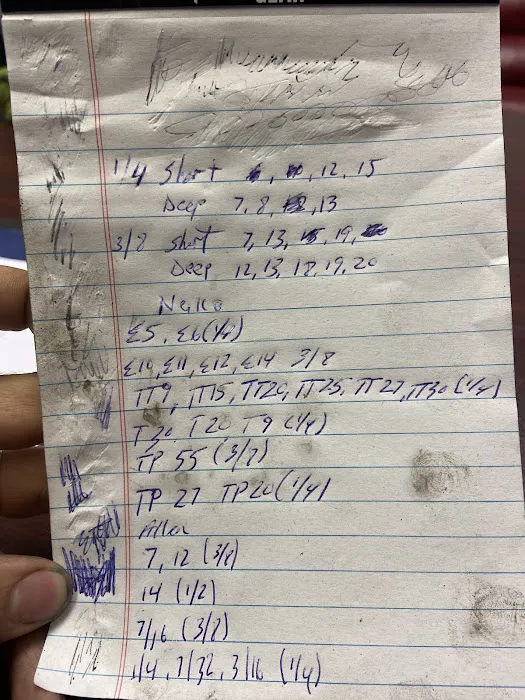 1/4 Short 12, 15
Deep 7, 8, 13
3/8 Short 7, 13, 19,
Deep 12, 13, 18, 19, 20
E5, E6 (1/4)
E10, E11, E12, E14 3/8
TT9, TT15, TT20, TT25, TT27, TT30 (1/4)
T30, T20 T9 (1/4)
TP 55 (3/8)
TP 27 TP20 (1/4)
Allen
7, 12 (3/8)
14 (1/2)
7/16 (3/8)
1/4, 7/32, 3/16 (1/4)